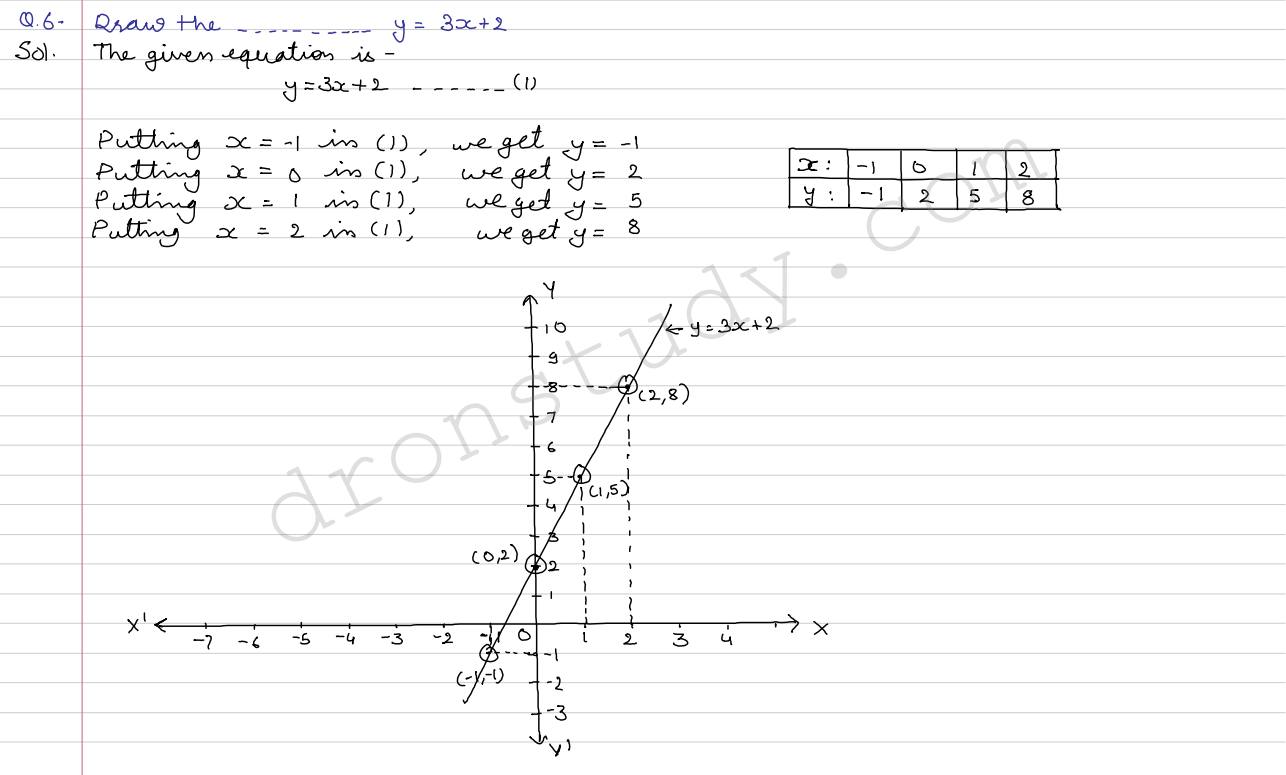 Q.6- Draw the ----------- y = 3x+2
Sol. The given equation is -
y=3x+2 ------ (1)
Putting x = -1 in (1), we get y = -1
Putting x = 0 in (1), we get y = 2
Putting x = 1 in (1), we get y = 5
Putting x = 2 in (1), we get y = 8
x: -1 0 1 2
y: -1 2 5 8
Y
10
← y=3x+2
9
8
(2,8)
7
6
5
(1,5)
4
3
(0,2)
2
1
X' -7 -6 -5 -4 -3 -2 -1 0 1 2 3 4 X
-1
(-1,-1)
-2
-3
Y'
dronstudy.com